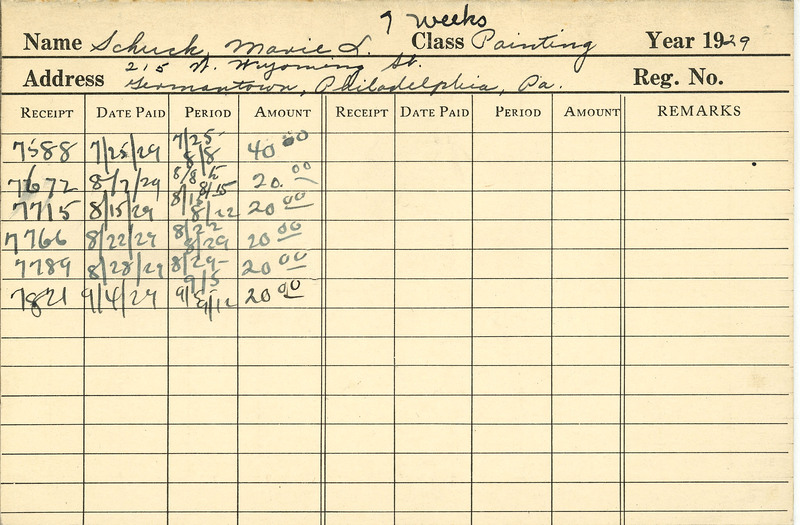 7 Weeks
Name Schuck, Marie L. Class Painting Year 1929
Address 215 W. Wyoming St. Reg. No.
Germantown, Philadelphia, Pa.
RECEIPT DATE PAID PERIOD AMOUNT RECEIPT DATE PAID PERIOD AMOUNT REMARKS
7588 7/25/29 7/25- 8/8 40 00
7672 8/7/29 8/8 to 8/15 20.00
7715 8/15/29 8/15- 8/22 20 00
7766 8/22/29 8/22 8/29 20 00
7789 8/28/29 8/29- 9/5 20 00
7821 9/4/29 9/5 9/12 20 00